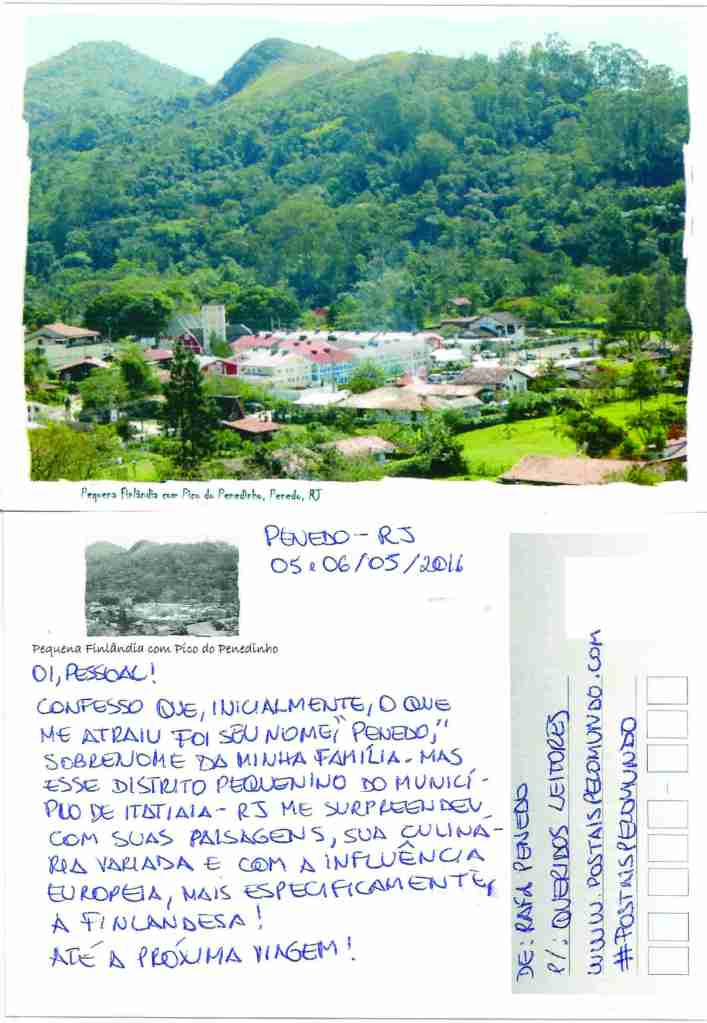 Pequena Finlândia com Pico do Penedinho, Penedo, RJ
PENEDO - RJ
05 e 06/05/2016
Pequena Finlândia com Pico do Penedinho
OI, PESSOAL!
CONFESSO QUE, INICIALMENTE, O QUE
ME ATRAIU FOI SEU NOME, "PENEDO,"
SOBRENOME DA MINHA FAMÍLIA. MAS
ESSE DISTRITO PEQUENINO DO MUNICÍ-
PIO DE ITATIAIA - RJ ME SURPREENDEU
COM SUAS PAISAGENS, SUA CULINÁ-
RIA VARIADA E COM A INFLUÊNCIA
EUROPEIA, MAIS ESPECIFICAMENTE,
A FINLANDESA!
ATÉ A PRÓXIMA VIAGEM!
DE: RAFA PENEDO
P/: QUERIDOS LEITORES
WWW.POSTAISPELOMUNDO.COM
#POSTAISPELOMUNDO